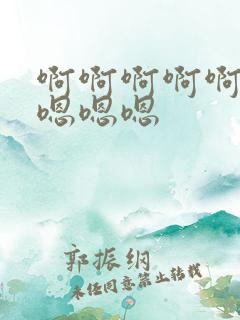 啊啊啊啊啊
嗯嗯嗯
郭振纲
未经同意禁止转载